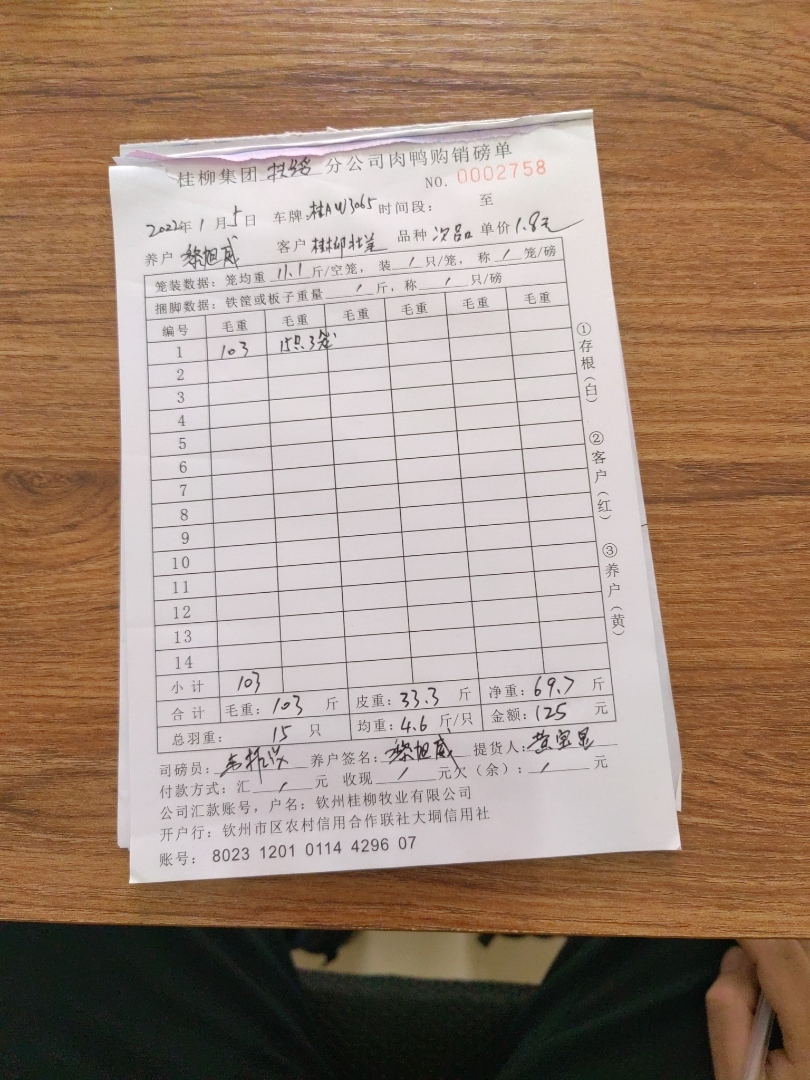 桂柳集团 扶绥 分公司肉鸭购销磅单
NO. 0002758
2022年 1 月 5 日 车牌: 桂AW3065 时间段: 至
养户 黎旭威 客户 桂柳 品种 次品 单价 1.8元
笼装数据: 笼均重 11.1 斤/空笼, 装 / 只/笼, 称 / 笼/磅
捆脚数据: 铁筐或板子重量 / 斤, 称 / 只/磅
编号 毛重 毛重 毛重 毛重 毛重 毛重
1 103 15只3笼
2
3
4
5
6
7
8
9
10
11
12
13
14
小计 103
合计 毛重: 103 斤 皮重: 33.3 斤 净重: 69.7 斤
总羽重: 15 只 均重: 4.6 斤/只 金额: 125 元
司磅员: 养户签名: 黎旭威 提货人: 黄
付款方式: 汇 / 元 收现 / 元欠(余): / 元
公司汇款账号, 户名: 钦州桂柳牧业有限公司
开户行: 钦州市区农村信用合作联社大垌信用社
账号: 8023 1201 0114 4296 07
①存根(白)
②客户(红)
③养户(黄)